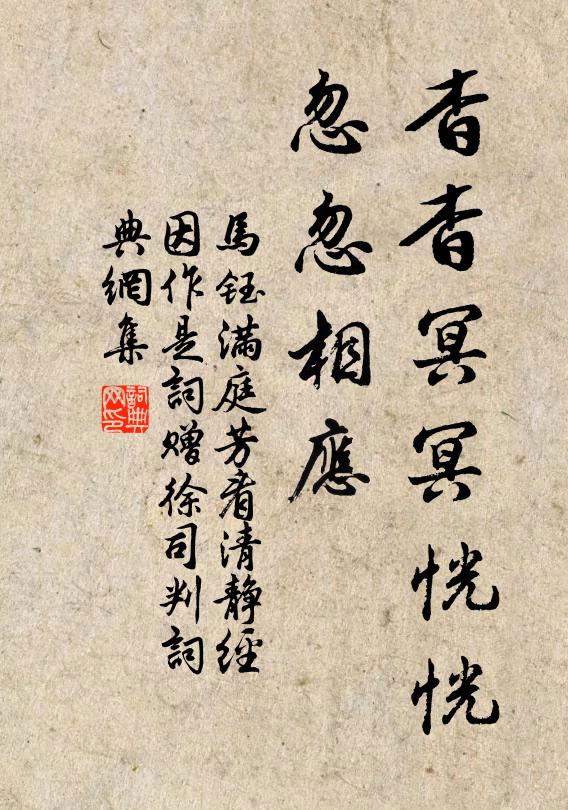 杳杳冥冥恍恍
忽忽相應
馬鈺滿庭芳看清靜經
因作是詞贈徐司判詞
典網集
詞典
网印